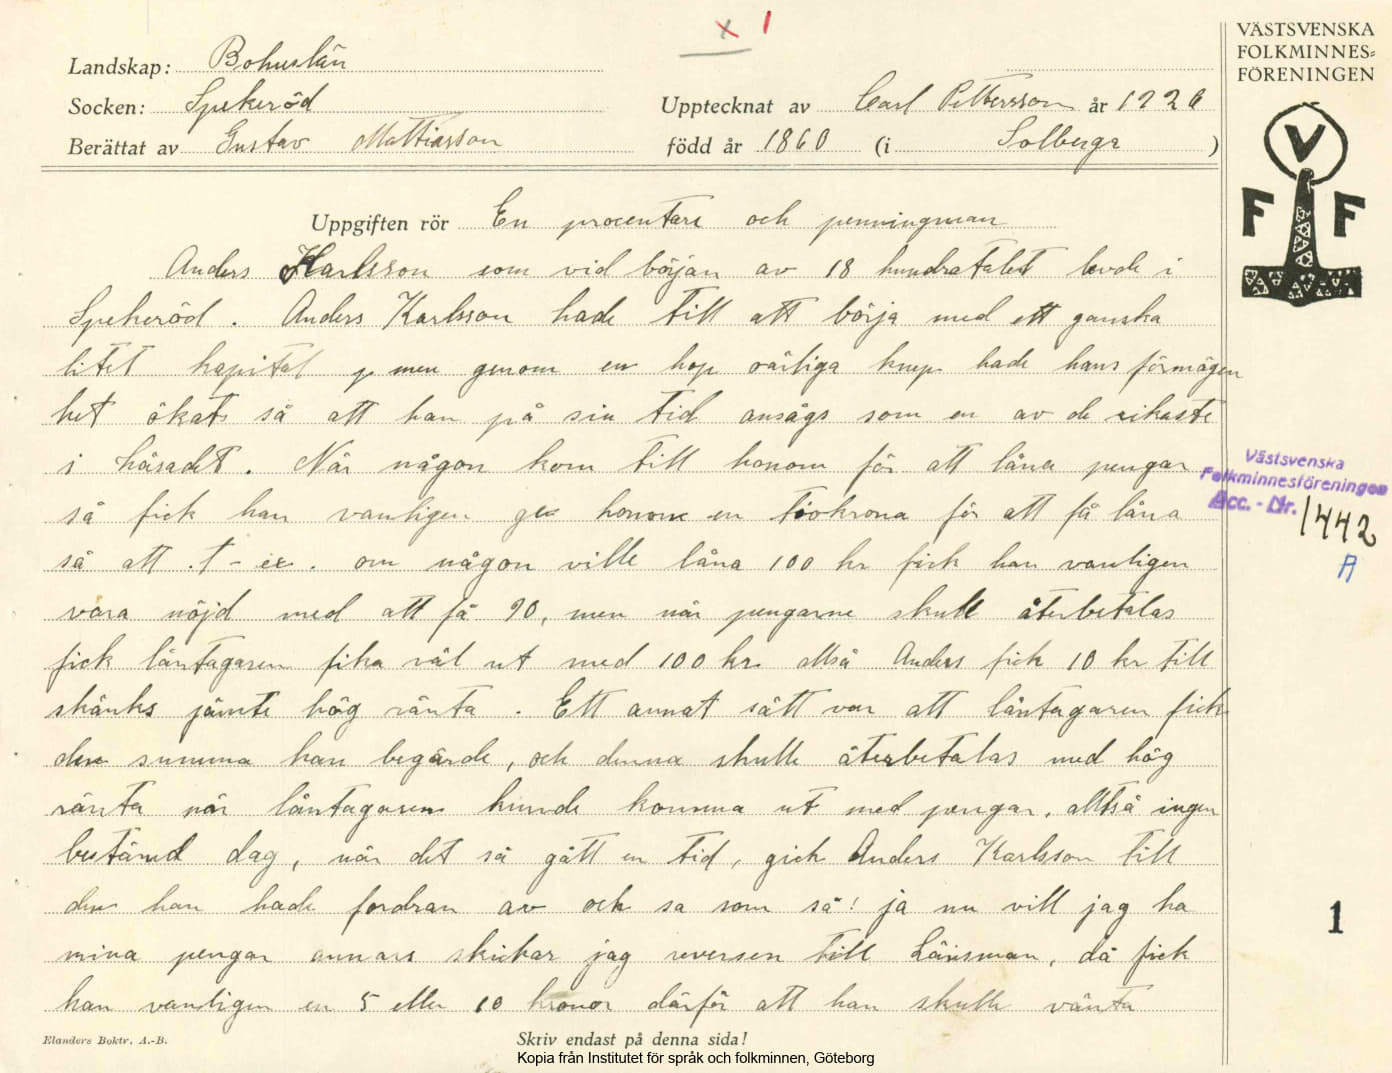 x 1
VÄSTSVENSKA
FOLKMINNES-
FÖRENINGEN
Landskap: Bohuslän
Socken: Spekeröd
Upptecknat av Carl Pettersson år 1926
Berättat av Gustav Mattiasson
född år 1860 (i Solberga)
V
F F
Uppgiften rör En procentare och penningman
Anders Karlsson som vid början av 18 hundratalet levde i
Spekeröd. Anders Karlsson hade till att börja med ett ganska
litet kapital men genom en hop oärliga knep hade hans förmögen
het ökats så att han på sin tid ansågs som en av de rikaste
i häradet. När någon kom till honom för att låna pengar
så fick han vanligen ge honom en tiokrona för att få låna
så att t-ex. om någon ville låna 100 kr fick han vanligen
vara nöjd med att få 90, men när pengarne skulle återbetalas
fick låntagaren fika väl ut med 100 kr alltså Anders fick 10 kr till
skänks jämte hög ränta. Ett annat sätt var att låntagaren fick
den summa han begärde, och denna skulle återbetalas med hög
ränta när låntagaren kunde komma ut med pengar, alltså ingen
bestämd dag, när det så gått en tid, gick Anders Karlsson till
den han hade fordran av och sa som så! ja nu vill jag ha
mina pengar annars skickar jag reversen till Länsman, då fick
han vanligen en 5 eller 10 kronor därför att han skulle vänta
Västsvenska
Folkminnesföreningen
Acc.-Nr. 1442
A
1
Elanders Boktr. A.-B.
Skriv endast på denna sida!
Kopia från Institutet för språk och folkminnen, Göteborg